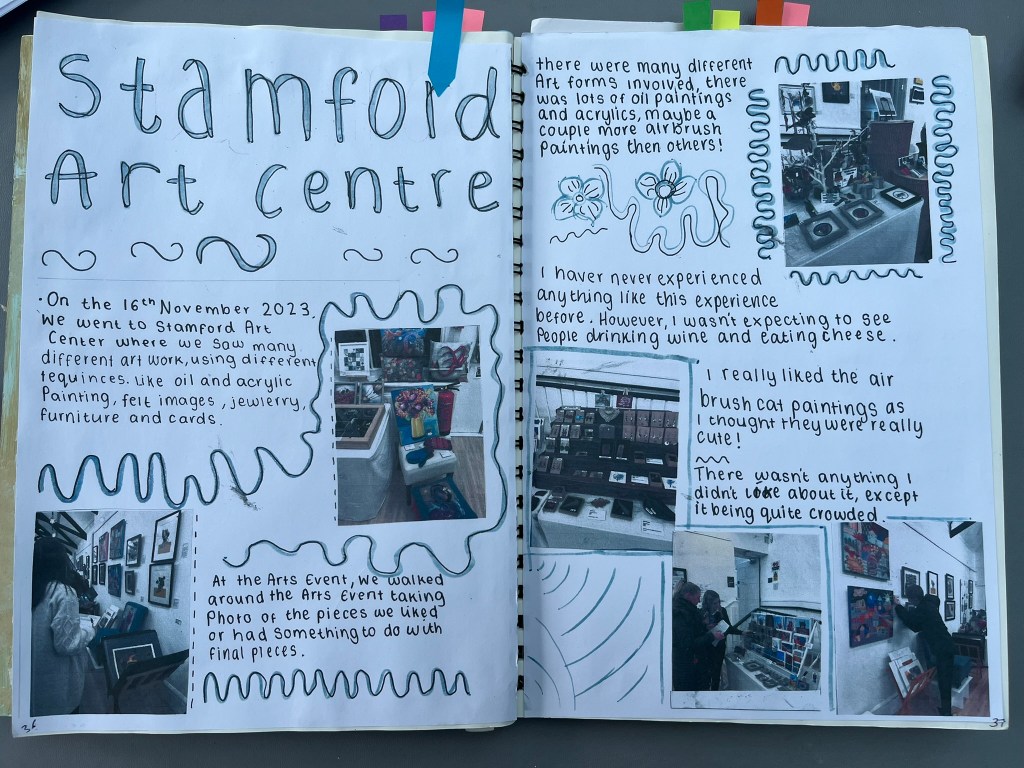 Stamford
Art centre
• On the 16th November 2023,
We went to Stamford Art
Center where we saw many
different art work, using different
tequinces. Like oil and acrylic
Painting, felt images, jewlerry,
furniture and cards.
At the Arts Event, we walked
around the Arts Event taking
Photo of the pieces we liked
or had something to do with
final pieces.
36
there were many different
Art forms involved, there
was lots of oil paintings
and acrylics, maybe a
couple more airbrush
Paintings then others!
I haver never experienced
anything like this experience
before. However, I wasn't expecting to see
People drinking wine and eating cheese.
I really liked the air
brush cat paintings as
I thought they were really
cute!
There wasn't anything I
didn't like about it, except
it being quite crowded.
37